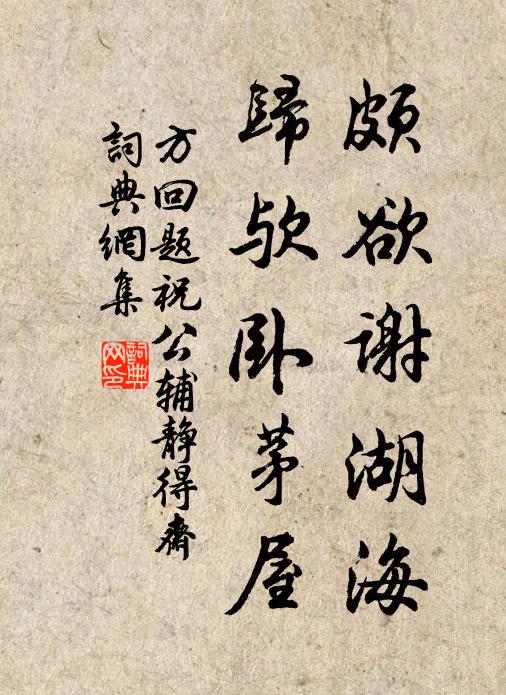 頗欲謝湖海
歸歟卧茅屋
方回題祝公輔靜得齋
詞典網集
詞典
网印